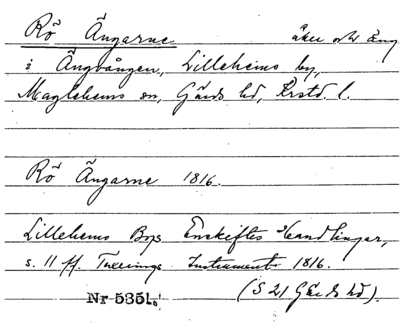 Rö Ängarne åker och äng
i Ängvången, Lillehems by,
Maglehems sn, Gärds hd, Krstd. l.
Rö Ängarne 1816.
Lillehems Bys Enskiftes Handlingar,
s. 11 ff. Taxerings Instrument 1816.
Nr 5351. (S 21 Gärds hd).